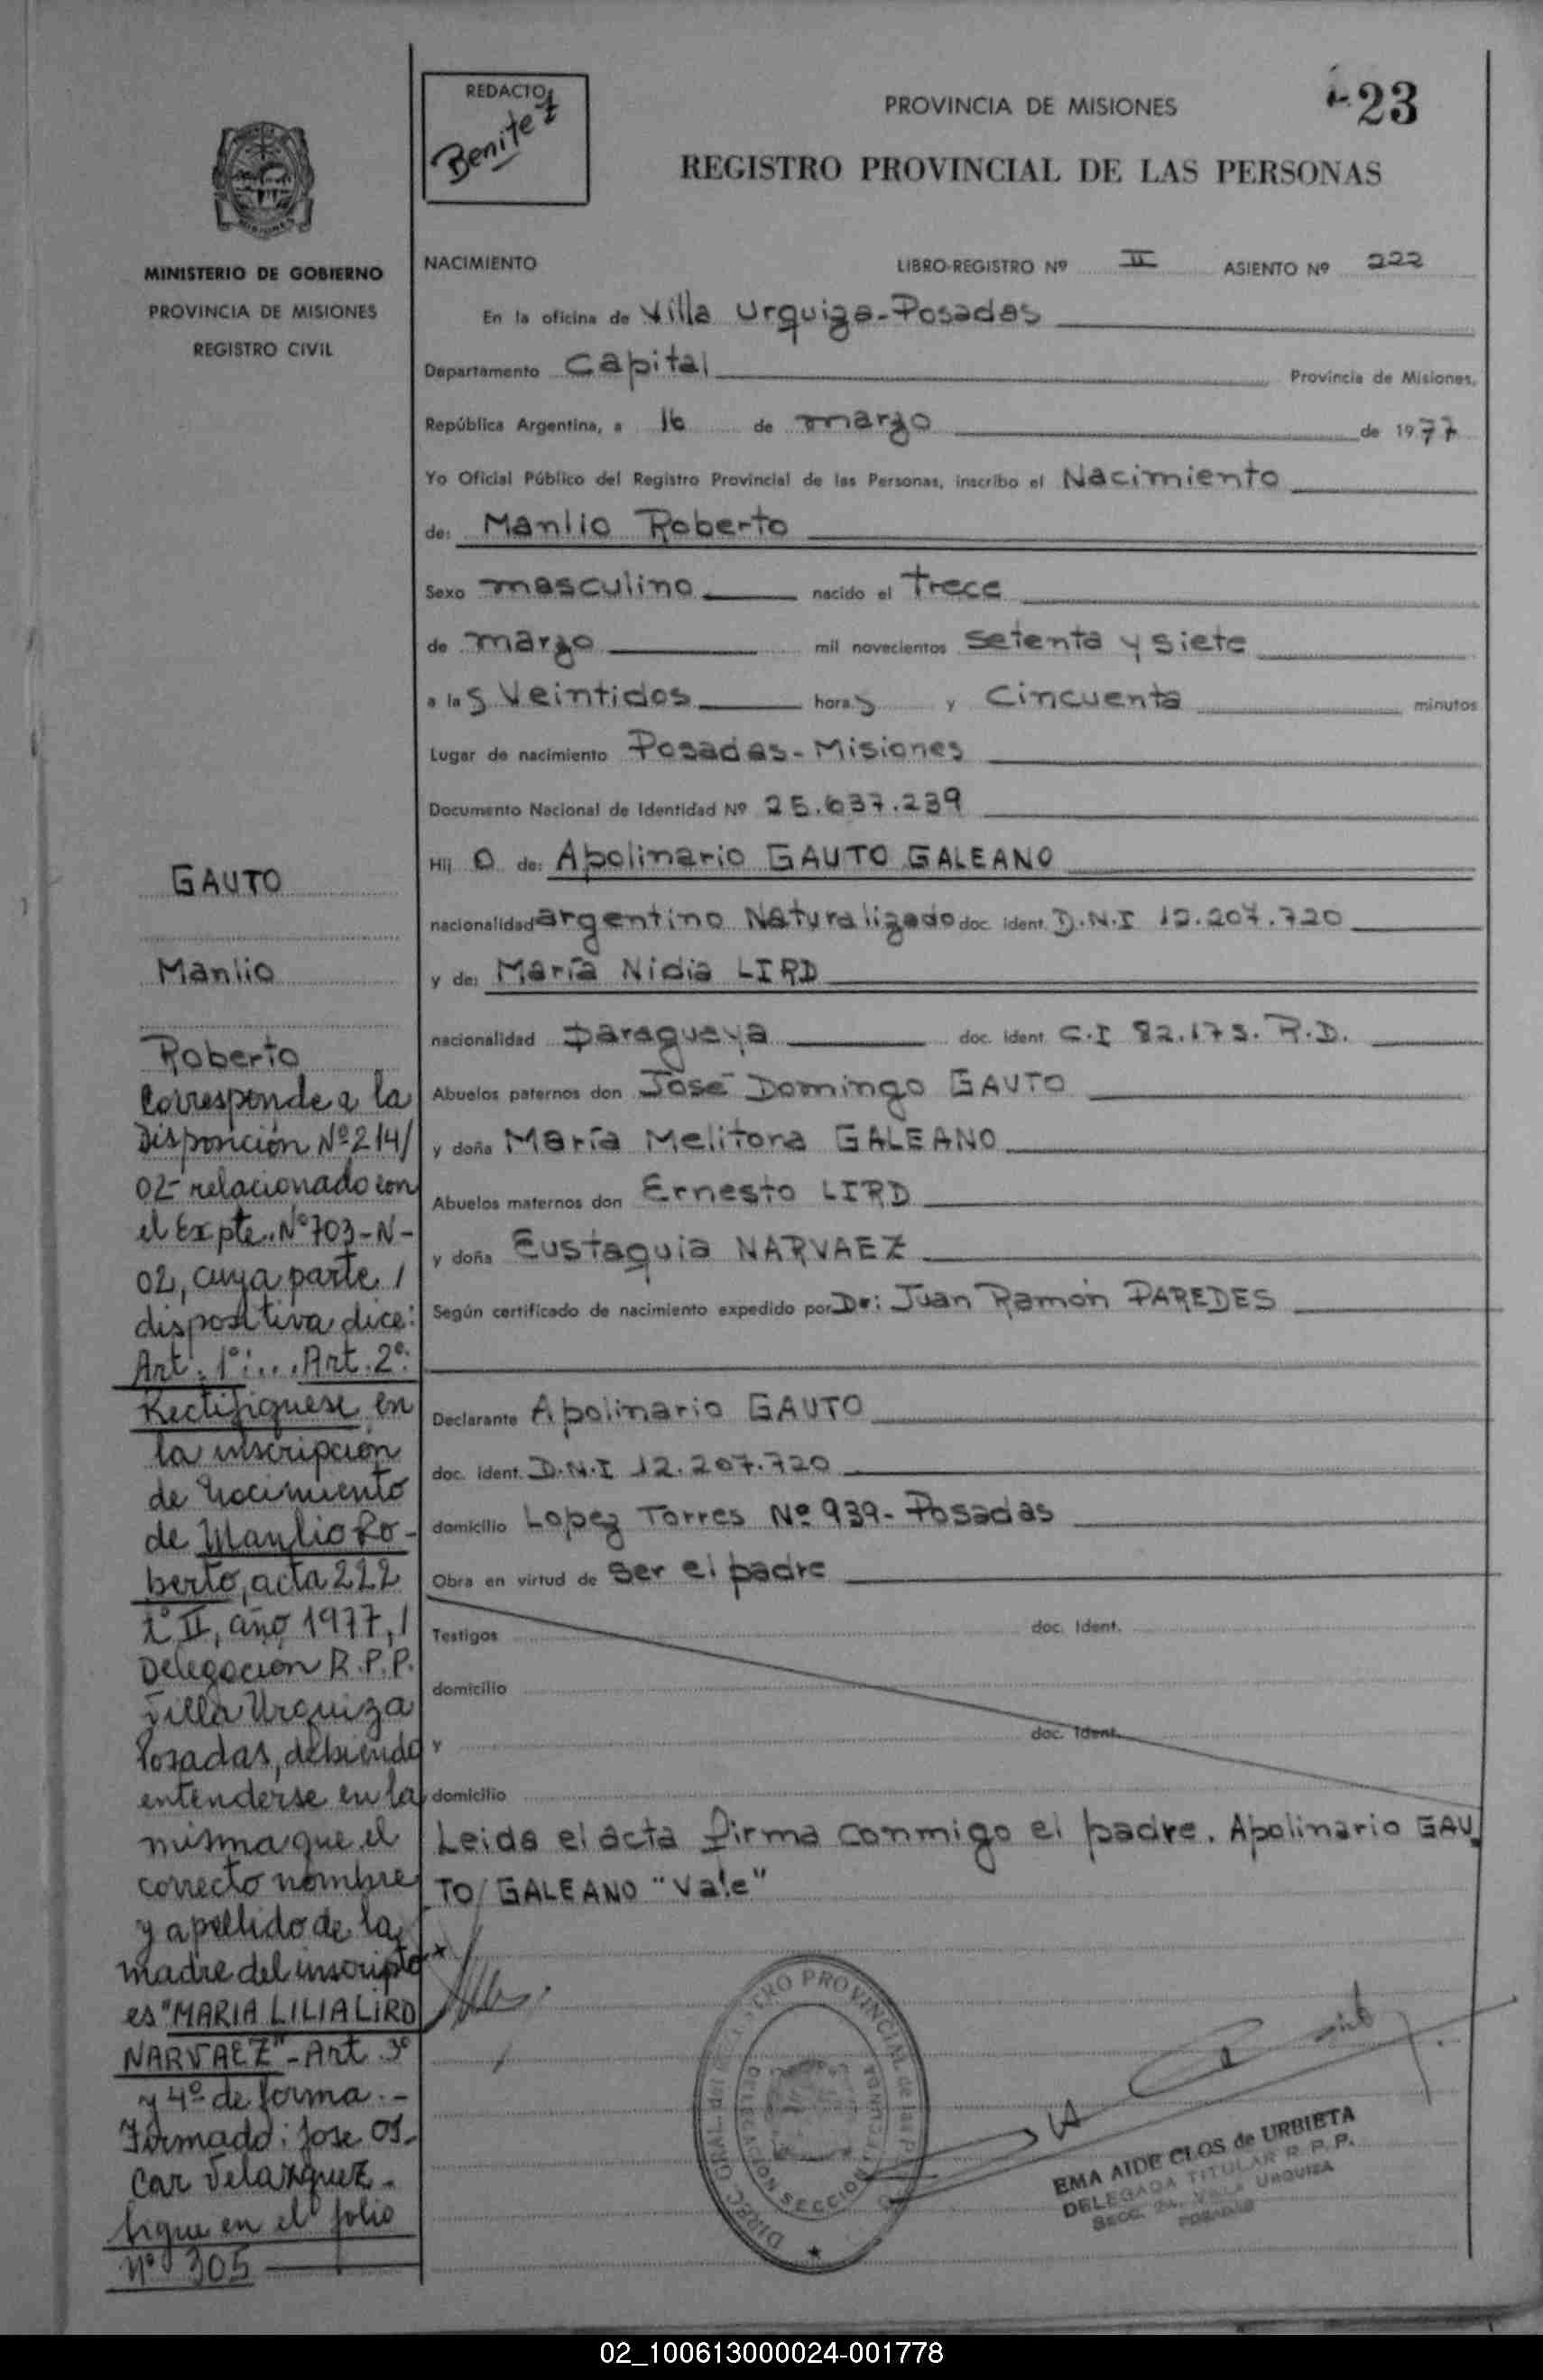 REDACTO
Benitez
PROVINCIA DE MISIONES
23
REGISTRO PROVINCIAL DE LAS PERSONAS
MINISTERIO DE GOBIERNO
PROVINCIA DE MISIONES
REGISTRO CIVIL
NACIMIENTO LIBRO-REGISTRO Nº II ASIENTO Nº 222
En la oficina de Villa Urquiza-Posadas
Departamento Capital Provincia de Misiones,
República Argentina, a 16 de marzo de 1977
Yo Oficial Público del Registro Provincial de las Personas, inscribo el Nacimiento
de: Manlio Roberto
Sexo masculino nacido el trece
de marzo mil novecientos setenta y siete
a las veintidos horas y cincuenta minutos
Lugar de nacimiento Posadas-Misiones
Documento Nacional de Identidad Nº 25.637.239
Hijo de: Apolinario GAUTO GALEANO
nacionalidad argentino Naturalizado doc. ident. D.N.I 12.207.720
y de: María Nidia LIRD
nacionalidad paraguaya doc. ident. C.I 82.173. R.D.
Abuelos paternos don José Domingo GAUTO
y doña María Melitona GALEANO
Abuelos maternos don Ernesto LIRD
y doña Eustaquia NARVAEZ
Según certificado de nacimiento expedido por Dr: Juan Ramón PAREDES
Declarante Apolinario GAUTO
doc. ident. D.N.I 12.207.720
domicilio Lopez Torres Nº 939- Posadas
Obra en virtud de ser el padre
Testigos doc. Ident.
domicilio
y doc. Ident.
domicilio
Leida el acta firma conmigo el padre. Apolinario GAU
TO/GALEANO "Vale"
GAUTO
Manlio
Roberto
Corresponde a la
Disposición Nº 214/
02- relacionado con
el Expte. Nº 703-N-
02, cuya parte /
dispositiva dice:
Art. 1º:... Art. 2º:
Rectifiquese en
la inscripción
de Nacimiento
de Manlio Ro-
berto, acta 222
tº II, año 1977, /
Delegación R.P.P.
Villa Urquiza
Posadas, debiendo
entenderse en la
misma que el
correcto nombre
y apellido de la
madre del inscripto
es "MARIA LILIA LIRD
NARVAEZ"- Art. 3º
y 4º de forma.-
Firmado: Jose Os-
car Velazquez.
Sigue en el folio
Nº 305
DIREC. GRAL. del REGISTRO PROVINCIAL de las
DELEGACION SECCION
EMA AIDE CLOS de URBIETA
DELEGADA TITULAR R.P.P.
SECC. 2a. VILLA URQUIZA
POSADAS
02_100613000024-001778